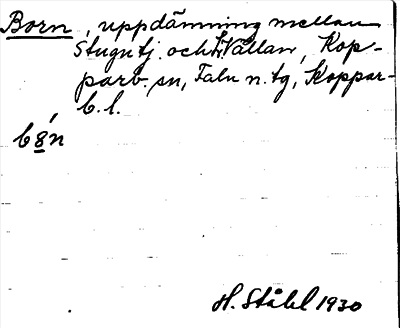 Born, uppdämning mellan
Stugutj. och St. Vällan, Kop-
parb. sn, Falu n. tg, Koppar-
b. l.
b8́n
H. Ståhl 1930